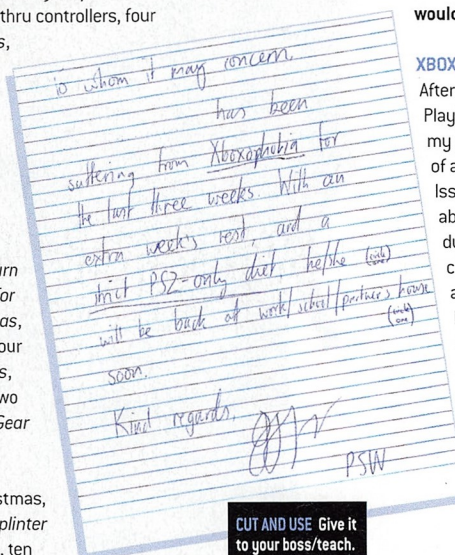 thru controllers, four
s,
urn
for
as,
our
s,
wo
Gear
stmas,
plinter
, ten
to whom it may concern,
has been
suffering from Xboxophobia for
the last three weeks. With an
extra week's rest, and a
strict PS2-only diet, he/she (circle one)
will be back at work/school/partner's house (circle one)
soon.
Kind regards,
PSW
CUT AND USE Give it
to your boss/teach.
would
XBOX
After
Play
my
of a
Iss
ab
du
c
a